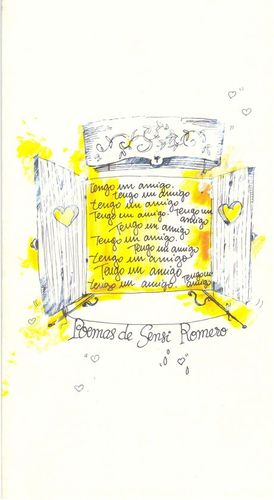 tengo un amigo.
tengo un amigo
tengo un amigo
Tengo un amigo. Tengo un amigo
Tengo un amigo
Tengo un amigo.
Tengo un amigo
tengo un amigo
Tengo un amigo
tengo un amigo. tengo un amigo
Poemas de Sensi Romero